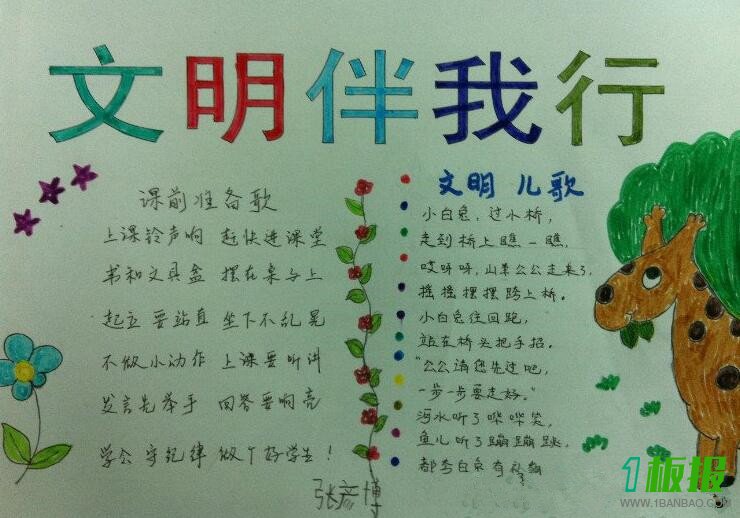 文明伴我行
课前准备歌
上课铃声响 赶快进课堂
书和文具盒 摆在桌与上
起立要站直 坐下不乱晃
不做小动作 上课要听讲
发言先举手 回答要响亮
学会守纪律 做个好学生!
张彦博
文明 儿歌
小白兔,过小桥,
走到桥上瞧一瞧,
哎呀呀,山羊公公走来了,
摇摇摆摆跨上桥。
小白兔往回跑,
站在桥头把手招。
"公公请您先过吧,
一步一步要走好。"
河水听了哗哗笑,
鱼儿听了蹦蹦跳,
都夸白兔有礼貌
1板报
WWW.1BANBAO.COM